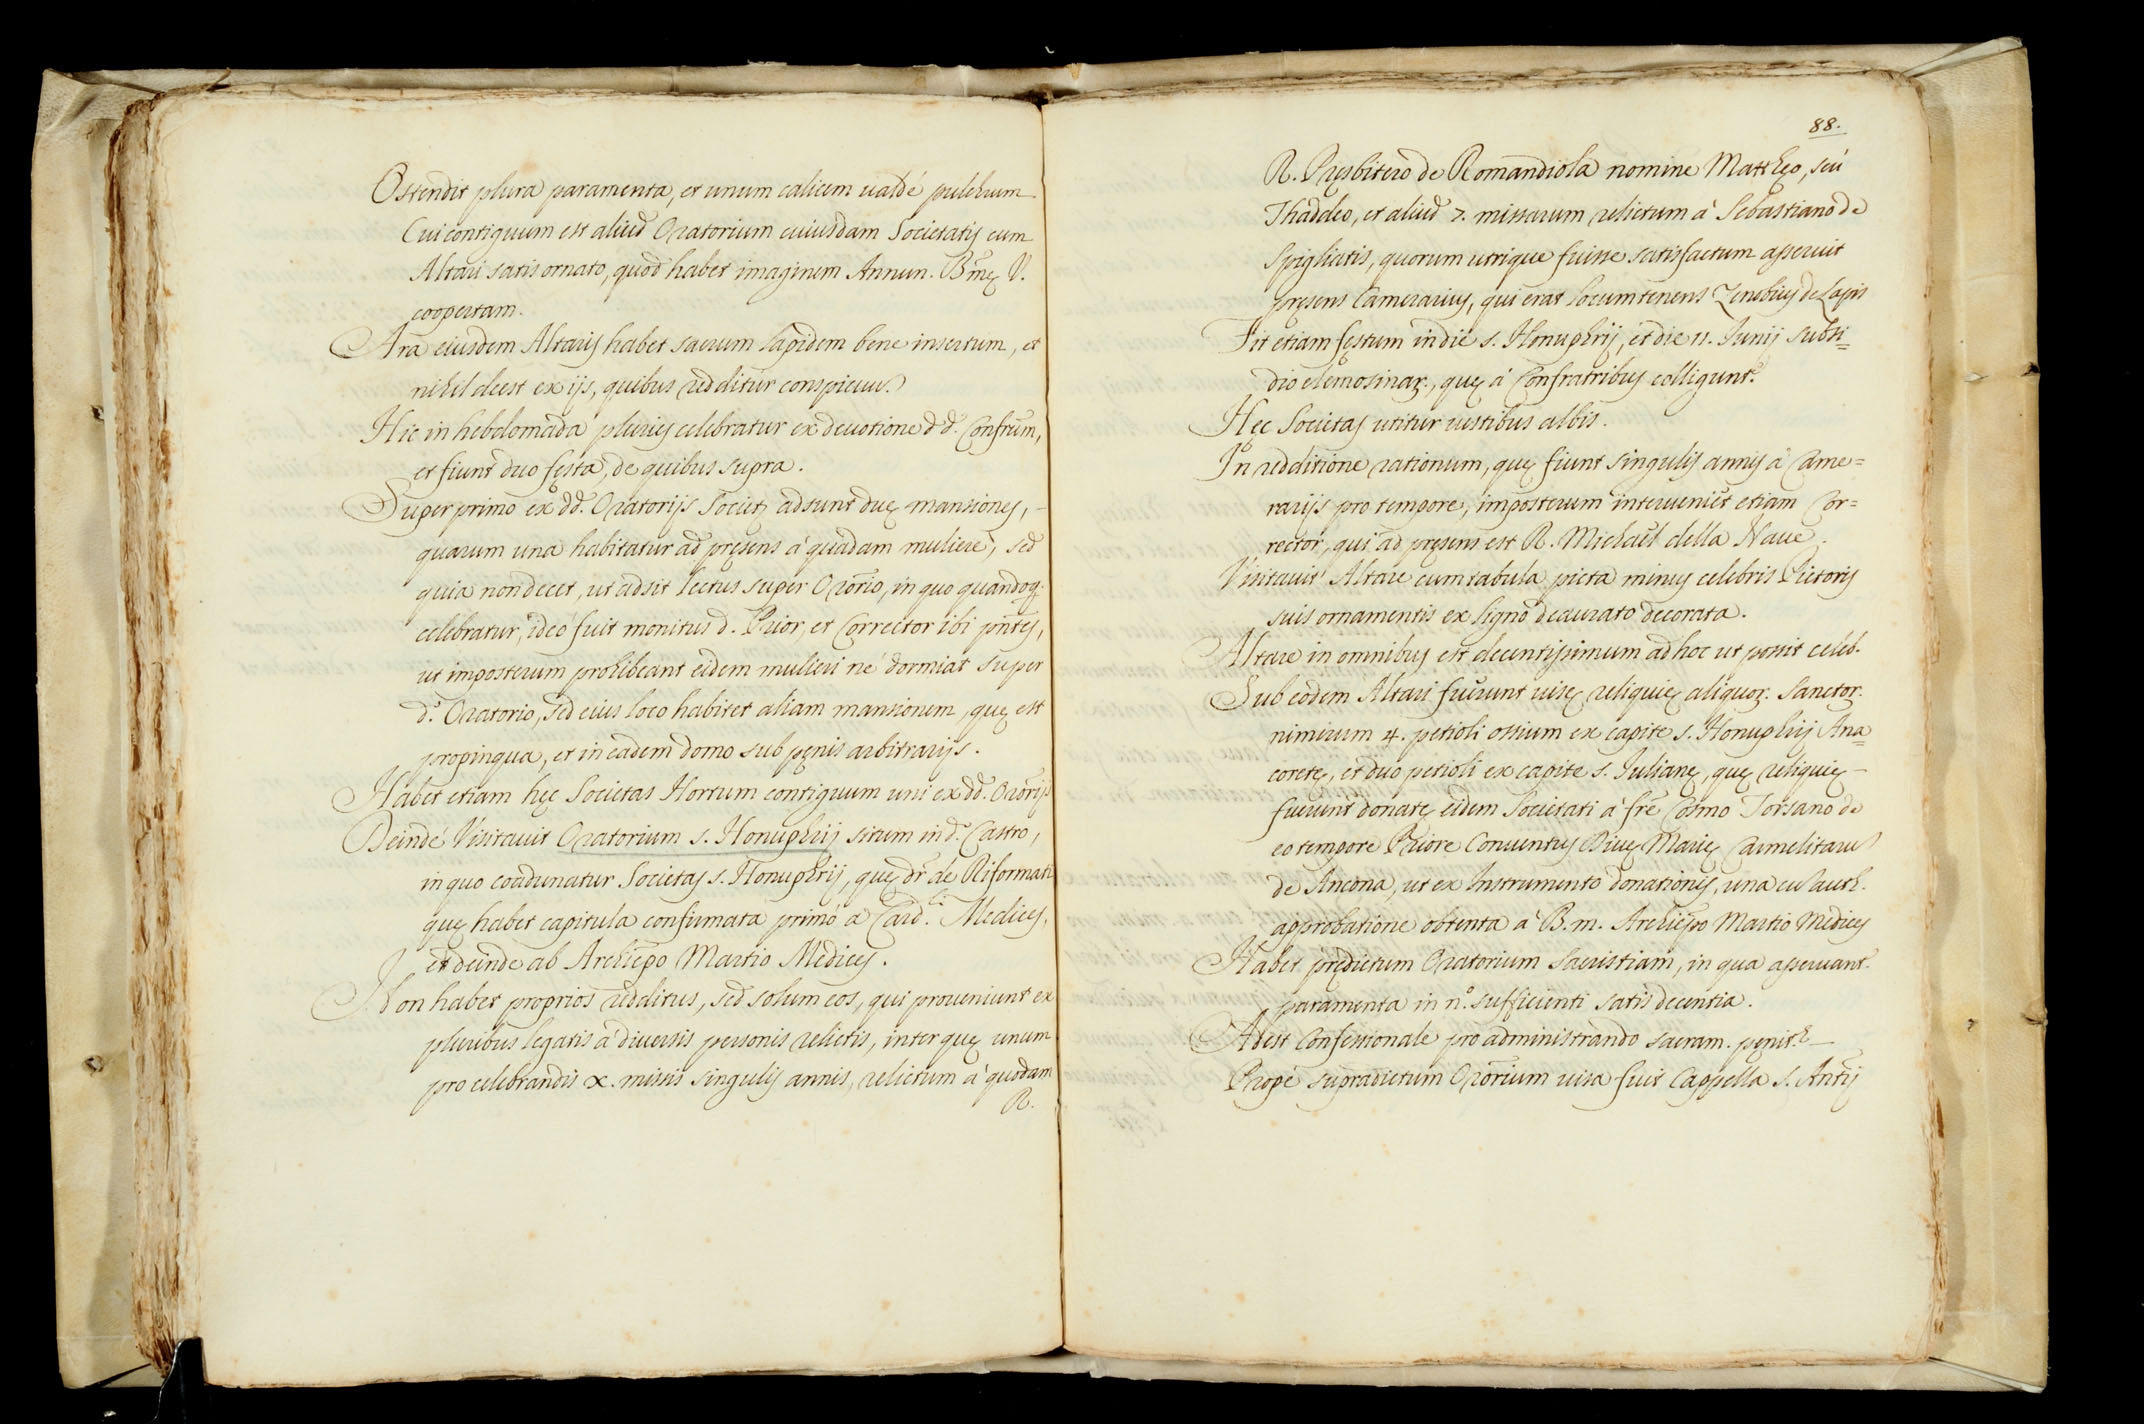 Ostendit plura paramenta, et unum calicem ualdè pulchrum
Cui contiguum est aliud Oratorium cuiusdam Societatis cum
Altari satis ornato, quod habet imaginem Annun. B̃mę V.
coopertam.
Ara eiusdem Altaris habet sacrum lapidem bene insertum, et
nihil deest ex ijs, quibus redditur conspicuũ
Hic in hebdomada pluries celebratur ex deuotione dd. Confrum̃,
et fiunt duo festa, de quibus supra.
Super primo ex dd. Oratorijs Societ. adsunt duę mansiones,
quarum una habitatur ad pręsens à quadam muliere, sed
quia non decet, ut adsit lectus super Orõrio, in quo quandoq.
celebratur, ideò fuit monitus d. Prior, et Corrector ibi pñtes,
ut imposterum prohibeant eidem mulieri nè dormiat super
d.º Oratorio, sed eius loco habitet aliam mansionem, quę est
propinqua, et in eadem domo sub pęnis arbitrarijs.
Habet etiam hęc Societas Hortum contiguum uni ex dd. Orõrijs
Deindè Visitauit Oratorium s. Honuphrij situm in d.º Castro,
in quo coadunatur Societas s. Honuphrij, quę dr̃ de Riformati
quę habet capitula confirmata primò a Card.li Medices,
et deinde ab Archiepõ Martio Medices.
Non habet proprios redditus, sed solum eos, qui proueniunt ex
pluribus legatis à diuersis personis relictis, inter quę unum
pro celebrandis x. missis singulis annis, relictum à quodam
R.
88.
R. Pręsbitero de Romandiola nomine Matthęo, seù
Thaddeo, et aliud 7. missarum relictum à Sebastiano de
Spigliatis, quorum utrique fuisse satisfactum asseruit
pręsens Camerarius, qui erat locumtenens Zenobius de Lapis
Fit etiam festum in die s. Honuphrij, et die 11. Iunij subsi=
dio elemosinar., quę à Confratribus colligunt.r
Hęc Societas utitur uestibus albis.
In redditione rationum, quę fiunt singulis annis à Came=
rarijs pro tempore, imposterum interueniet etiam Cor=
rector, qui ad pręsens est R. Michael della Naue.
Visitauit Altare cum tabula picta minus celebris Pictoris
suis ornamentis ex ligno deaurato decorata.
Altare in omnibus est decentissimum ad hoc ut possit celeb.
Sub eodem Altari fuerunt uisę reliquię aliquor. Sanctor.
nimirum 4. petioli ossium ex capite s. Honuphrij Ana=
coretę, et duo petioli ex capite s. Iulianę, quę reliquię
fuerunt donatę eidem Societati à fr̃e Cosmo Torsano de
eo tempore Priore Conuentus Diuę Marię Carmelitarũ
de Ancona, ut ex Instrumento donationis, una cũ auth.
approbatione obtenta à B. m. Archiepo Martio Medices
Habet prędictum Oratorium Sacristiam, in qua asseruant.
paramenta in n.º sufficienti satis decentia.
Adest Confessionale pro administrando sacram. pęnit.ę
Propè supradictum Orõrium uisa fuit Cappella s. Antij